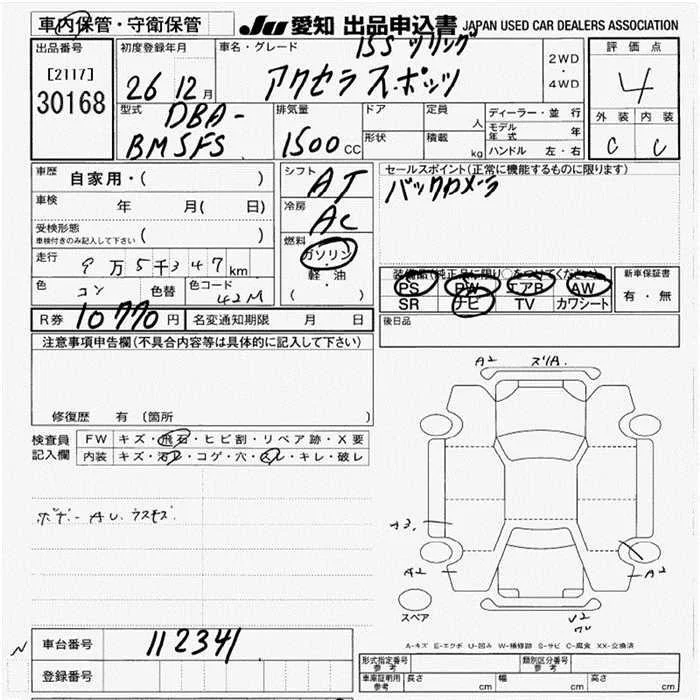 車内保管・守衛保管
JU 愛知 出品申込書 JAPAN USED CAR DEALERS ASSOCIATION
出品番号
[2117]
30168
初度登録年月
26 12月
車名・グレード
15S ツーリング
アクセラ スポーツ
2WD
・
4WD
評価点
4
外装 内装
C C
型式
DBA-
BM5FS
排気量
1500cc
ドア
形状
定員 人
積載 kg
ディーラー・並行
モデル年式 年
ハンドル 左・右
車歴 自家用・( )
車検 年 月( 日)
受検形態
車検付きのみ記入して下さい ( )
走行 9万5千347km
色 コン 色替 色コード 42M
シフト AT
冷房 AC
燃料
ガソリン
・
軽油
( )
セールスポイント(正常に機能するものに限ります)
バックカメラ
装備品(純正品に限り○をつけてください)
PS PW エアB AW
SR ナビ TV カワシート
新車保証書
有・無
R券 10770円 名変通知期限 月 日
後日品
注意事項申告欄(不具合内容等は具体的に記入して下さい)
修復歴 有 〔箇所
検査員
記入欄
FW キズ・飛石・ヒビ割・リペア跡・X要
内装 キズ・汚レ・コゲ・穴・スレ・キレ・破レ
ボデーAU.ウスキズ.
A2 スリA.
A3.
A2
A2
スペア
A-キズ E-エクボ U-凹み W-補修跡 S-サビ C-腐食 XX-交換済
車台番号 112341
登録番号
形式指定番号
参考
類別区分番号
参考
車庫証明用
参考
長さ cm 幅 cm 高さ cm